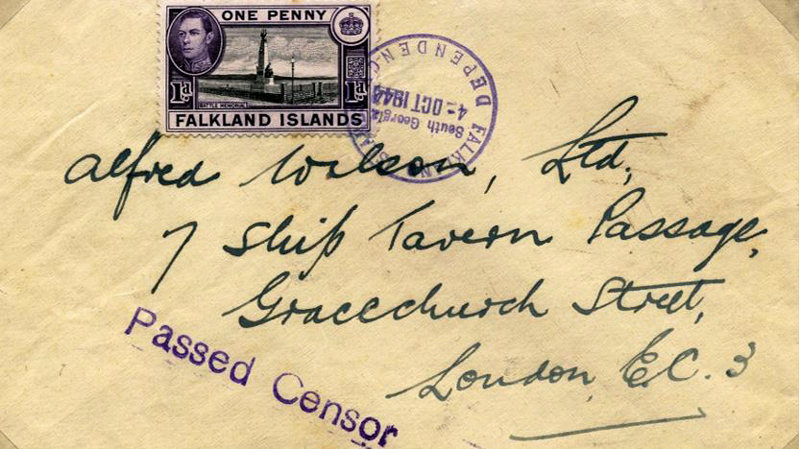 ONE PENNY
1d 1d
BATTLE MEMORIAL
FALKLAND ISLANDS
FALKLAND DEPENDENC
South Georgia
4 OCT 1944
Alfred Wilson, Ltd,
7 Ship Tavern Passage,
Gracechurch Street,
London, E.C.3
Passed Censor